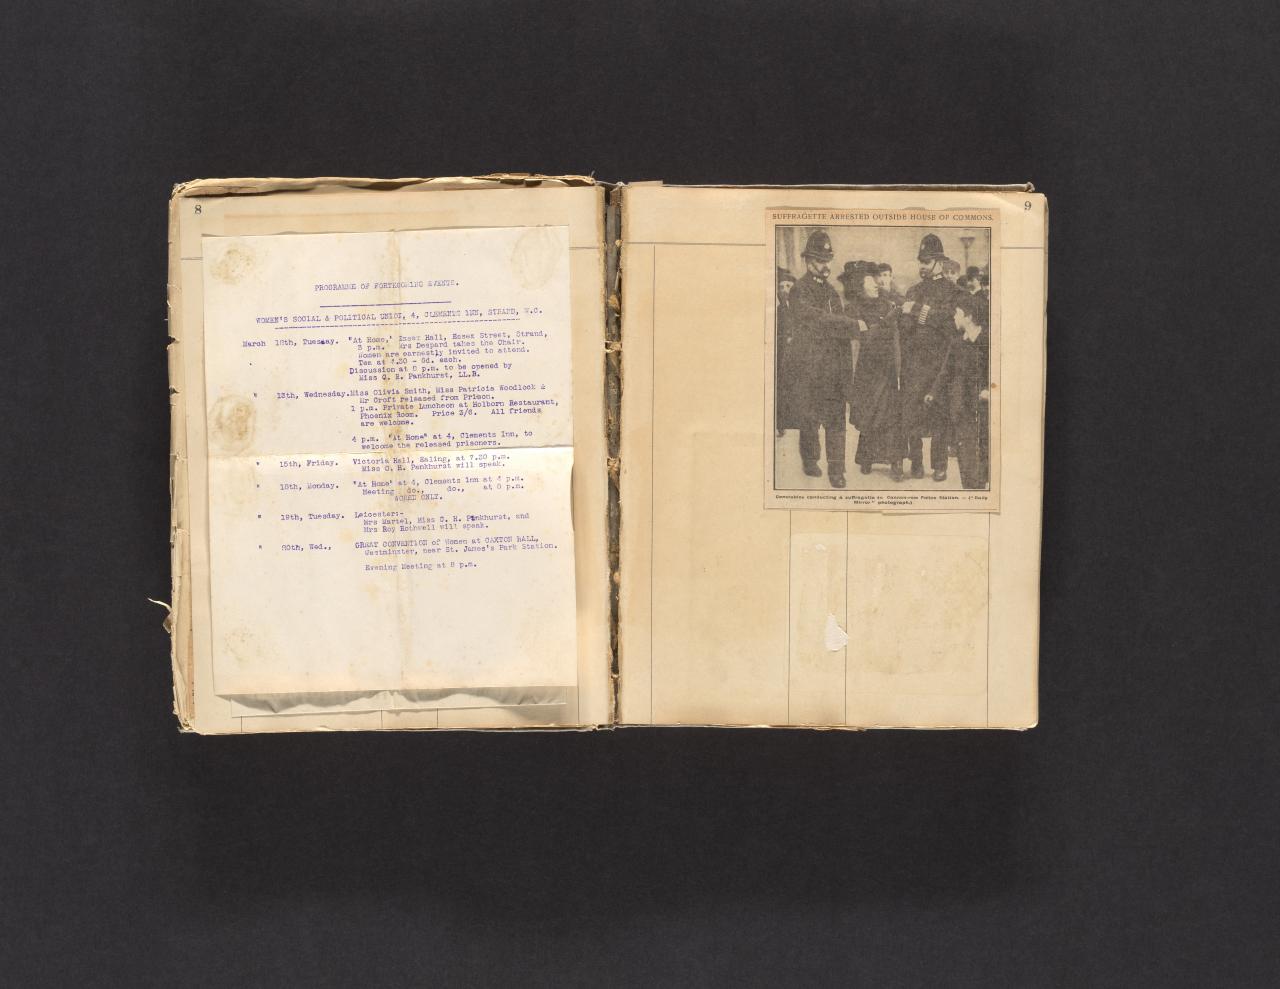 8
PROGRAMME OF FORTHCOMING EVENTS.
WOMEN'S SOCIAL & POLITICAL UNION, 4, CLEMENTS INN, STRAND, W.C.
March 12th, Tuesday. "At Home," Essex Hall, Essex Street, Strand,
3 p.m. Mrs Despard takes the Chair.
Women are earnestly invited to attend.
Tea at 4.30 - 6d. each.
Discussion at 8 p.m. to be opened by
Miss C. H. Pankhurst, LL.B.
" 13th, Wednesday. Miss Olivia Smith, Miss Patricia Woodlock &
Mr Croft released from Prison.
1 p.m. Private Luncheon at Holborn Restaurant,
Phoenix Room. Price 3/6. All friends
are welcome.
4 p.m. "At Home" at 4, Clements Inn, to
welcome the released prisoners.
" 15th, Friday. Victoria Hall, Ealing, at 7.30 p.m.
Miss C. H. Pankhurst will speak.
" 18th, Monday. "At Home" at 4, Clements Inn at 4 p.m.
Meeting do., do., at 8 p.m.
WOMEN ONLY.
" 19th, Tuesday. Leicester:-
Mrs Martel, Miss C. H. Pankhurst, and
Mrs Roy Rothwell will speak.
" 20th, Wed., GREAT CONVENTION of Women at CAXTON HALL,
Westminster, near St. James's Park Station.
Evening Meeting at 8 p.m.
9
SUFFRAGETTE ARRESTED OUTSIDE HOUSE OF COMMONS.
Constables conducting a suffragette to Cannon-row Police Station. — ("Daily
Mirror" photograph.)